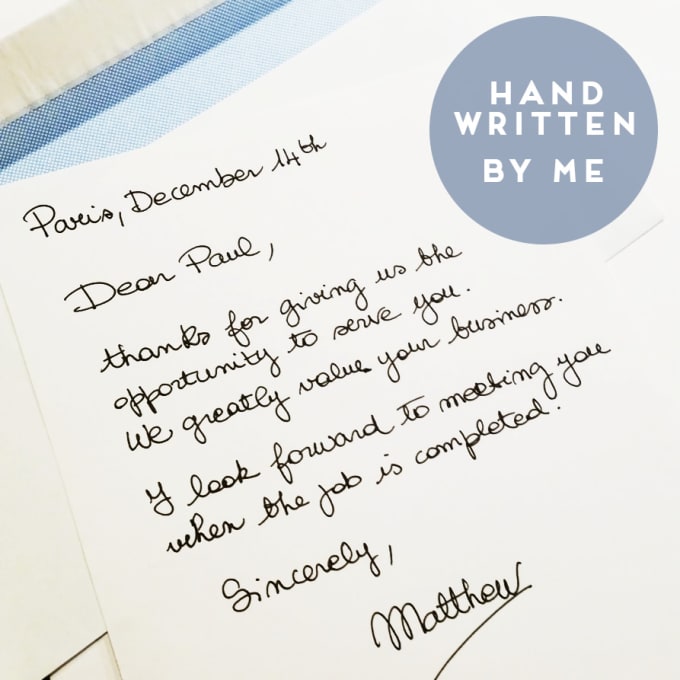 HAND
WRITTEN
BY ME
Paris, December 14th
Dear Paul,
thanks for giving us the
opportunity to serve you.
We greatly value your business.
I look forward to meeting you
when the job is completed.
Sincerely,
Matthew